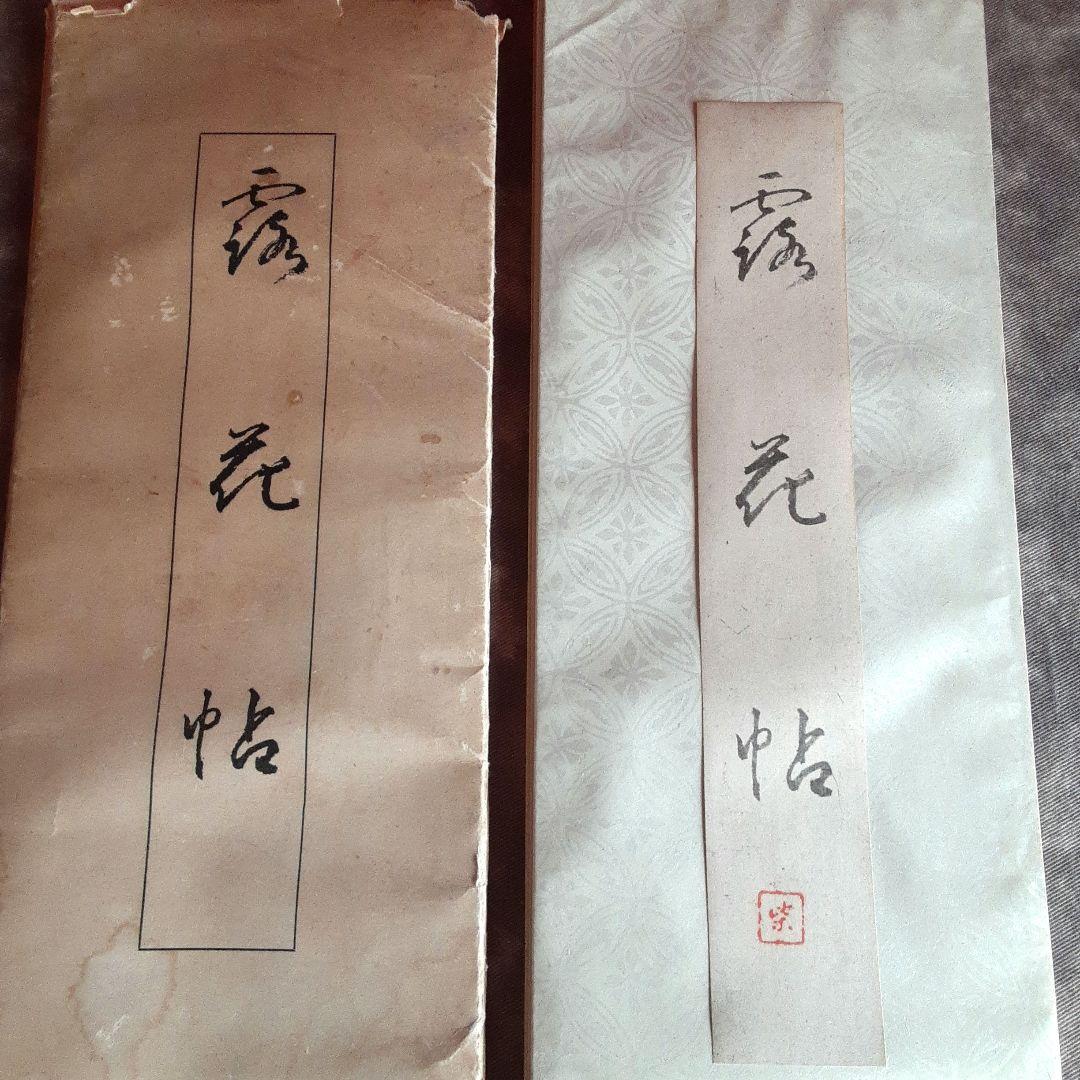 露花帖
露花帖
紫